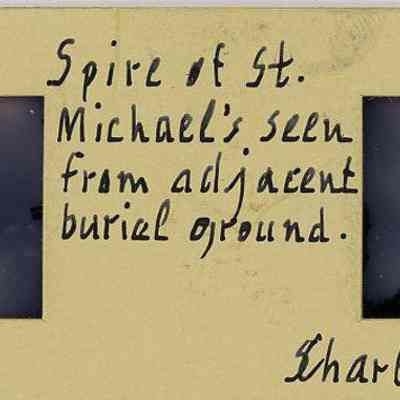 Spire of St.
Michael's seen
from adjacent
burial ground.
Charl